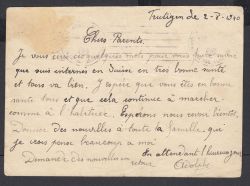 Frutigen le 2-8-1940
Chers Parents.
Je vous écris ces quelques mots pour vous
que suis interné en Suisse en très bonne santé
et tous va bien. J'espère que vous êtes en bonne
santé tous et que cela continue à marcher
comme à l'habitude. Espérons nous revoir bientôt.
Donner des nouvelles à toute la famille, que
je crois pense beaucoup à moi
En attendant l'heureux
Demande des nouvelles au retour Adolphe